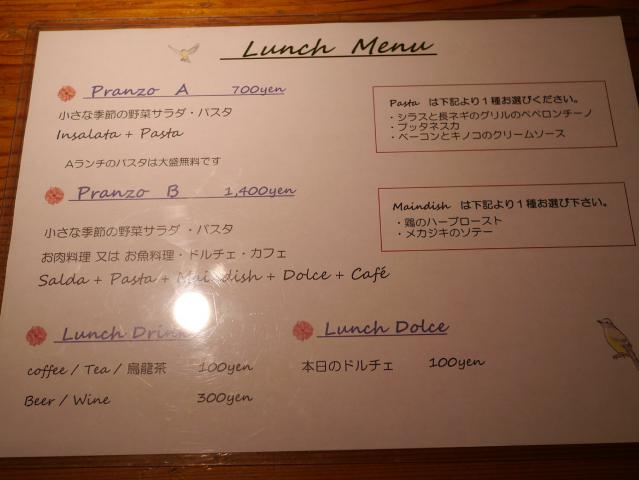 Lunch Menu
Pranzo A 700yen
小さな季節の野菜サラダ・パスタ
Insalata + Pasta
Aランチのパスタは大盛無料です
Pasta は下記より1種お選びください。
・シラスと長ネギのグリルのペペロンチーノ
・プッタネスカ
・ベーコンとキノコのクリームソース
Pranzo B 1,400yen
小さな季節の野菜サラダ ・パスタ
お肉料理 又は お魚料理・ドルチェ・カフェ
Salda + Pasta + Maindish + Dolce + Café
Maindish は下記より1種お選び下さい。
・鶏のハーブロースト
・メカジキのソテー
Lunch Drink
coffee / Tea / 烏龍茶 100yen
Beer / Wine 300yen
Lunch Dolce
本日のドルチェ 100yen